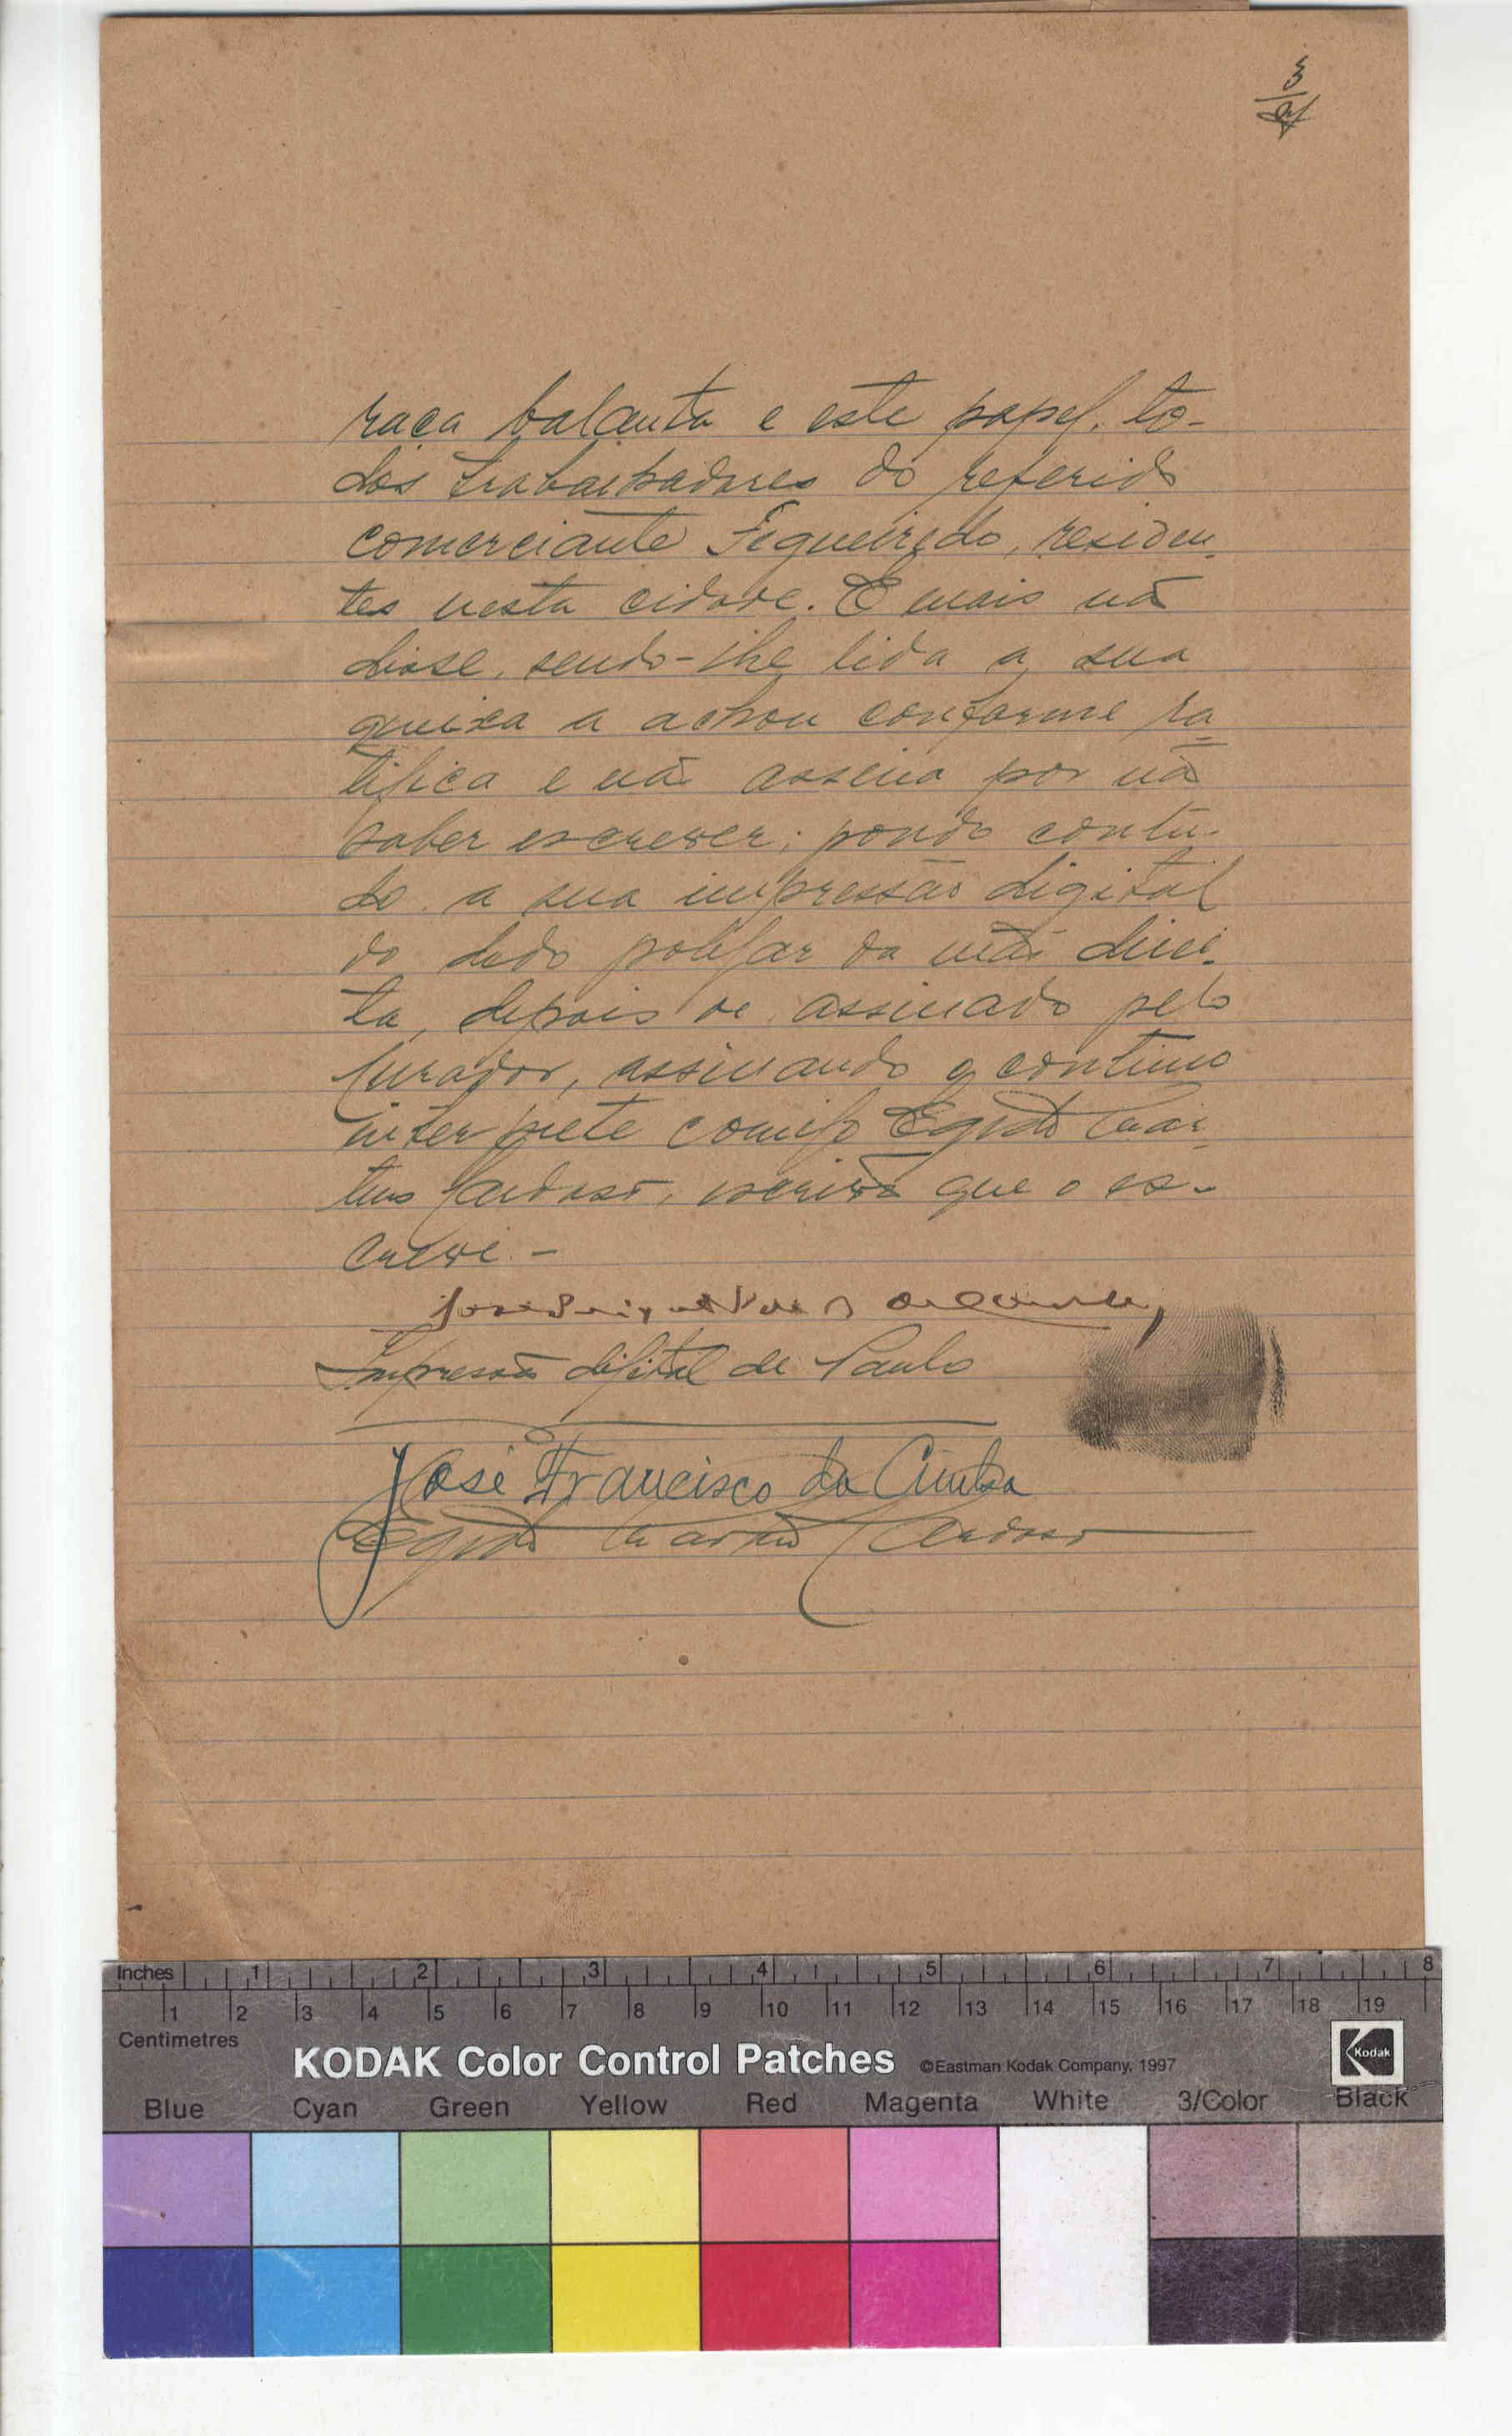 3
raça balanta e este papel, to-
dos trabalhadores do referido
comerciante Figueiredo, residen-
tes nesta cidade. E mais não
disse, sendo-lhe lida a sua
queixa a achou conforme ra-
tifica e não assina por não
saber escrever; pondo contu-
do a sua impressão digital
do dedo polegar da mão direi-
ta, depois de assinado pelo
Curador, assinando o contínuo
intérprete comigo Egidio Mar-
tins Cardoso, escrivão que o es-
crevi. -
José
Impressão digital de Paulo
José Francisco da Cunha
Egidio Martins Cardoso
Inches 1 2 3 4 5 6 7 8
1 2 3 4 5 6 7 8 9 10 11 12 13 14 15 16 17 18 19
Centimetres
KODAK Color Control Patches ©Eastman Kodak Company, 1997 Kodak
Blue Cyan Green Yellow Red Magenta White 3/Color Black